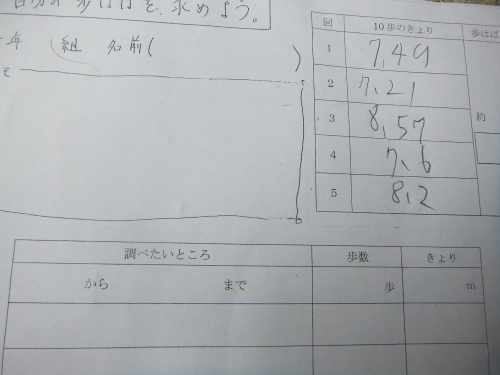 自分の歩はばを、求めよう。
年 組 名前( )
回 10歩のきより 歩はば
1 7,49
2 7,21
3 8,57
約
4 7,6
5 8,2
調べたいところ 歩数 きより
から まで 歩 m